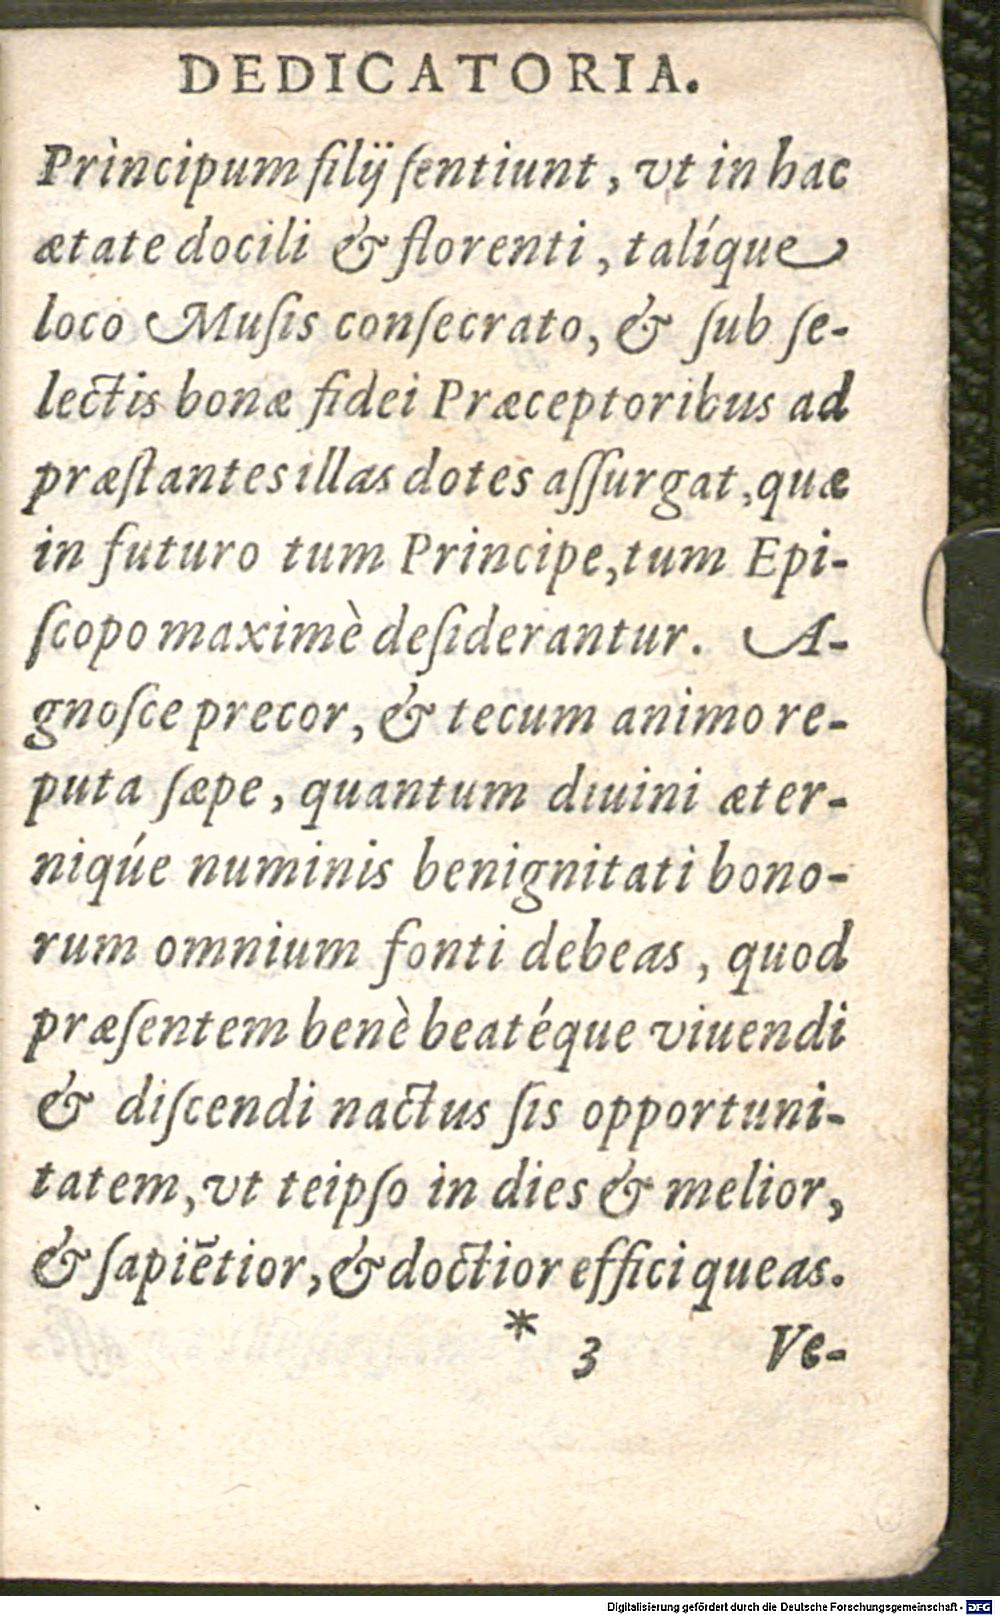 DEDICATORIA.
Principum filij ſentiunt, vt in hac
ætate docili & florenti, talíque
loco Muſis conſecrato, & ſub ſe-
lectis bonæ fidei Præceptoribus ad
præſtantes illas dotes aſſurgat, quæ
in futuro tum Principe, tum Epi-
ſcopo maximè deſiderantur. A-
gnoſce precor, & tecum animo re-
puta ſæpe, quantum diuini æter-
niqúe numinis benignitati bono-
rum omnium fonti debeas, quod
præſentem benè beatéque viuendi
& diſcendi nactus ſis opportuni-
tatem, vt teipſo in dies & melior,
& ſapiẽtior, & doctior effici queas.
* 3 Ve-
Digitalisierung gefördert durch die Deutsche Forschungsgemeinschaft - DFG